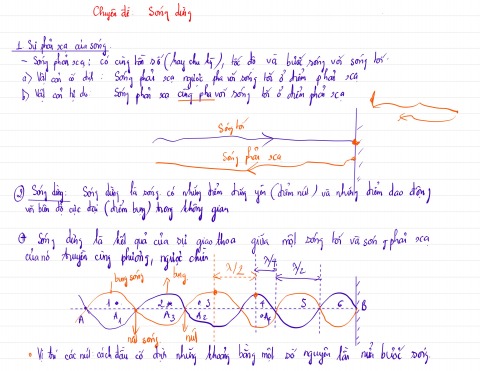 Chuyên đề: Sóng dừng
1. Sự phản xạ của sóng:
- Sóng phản xạ: có cùng tần số (hay chu kỳ), tốc độ và bước sóng với sóng tới.
a) Vật cản cố định: Sóng phản xạ ngược pha với sóng tới ở điểm phản xạ
b) Vật cản tự do Sóng phản xạ cùng pha với sóng tới ở điểm phản xạ
Sóng tới
Sóng phản xạ
2. Sóng dừng: Sóng dừng là sóng có những điểm đứng yên (điểm nút) và những điểm dao động
với biên độ cực đại (điểm bụng) trong không gian
Sóng dừng là kết quả của sự giao thoa giữa một sóng tới và sóng phản xạ
của nó truyền cùng phương, ngược chiều
λ/2 λ/4 λ/2
bụng sóng bụng
1 2 3 4 5 6
A A₁ A₃ A₂ A₄ B
nút sóng nút
• Vị trí các nút: cách đầu cố định những khoảng bằng một số nguyên lần nửa bước sóng